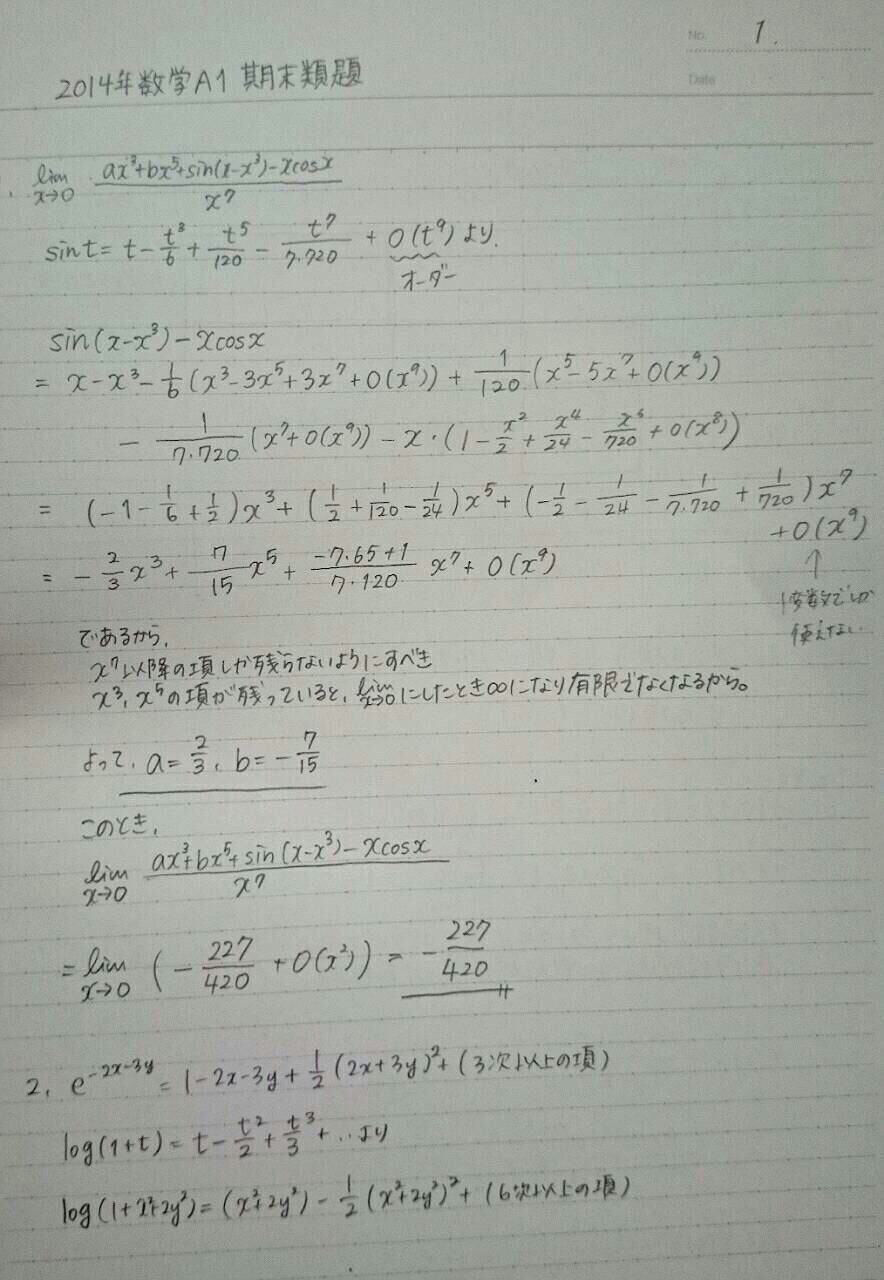 No. 1.
Date
2014年数学A1 期末類題
. lim x→0 (ax³+bx⁵+sin(x-x³)-xcosx)/x⁷
sint = t - t³/6 + t⁵/120 - t⁷/7·720 + O(t⁹) より.
オーダー
sin(x-x³)-xcosx
= x-x³-1/6(x³-3x⁵+3x⁷+O(x⁹)) + 1/120(x⁵-5x⁷+O(x⁹))
- 1/7·720(x⁷+O(x⁹)) - x·(1-x²/2+x⁴/24-x⁶/720+O(x⁸))
= (-1-1/6+1/2)x³+(1/2+1/120-1/24)x⁵+(-1/2-1/24-1/7·720+1/720)x⁷
+O(x⁹)
↑
1変数でしか
使えない
= -2/3x³+7/15x⁵+(-7·65+1)/7·120 x⁷+O(x⁹)
であるから,
x⁷以降の項しか残らないようにすべき
x³, x⁵の項が残っていると, lim x→0にしたとき∞になり有限でなくなるから。
よって, a=2/3, b=-7/15
このとき,
lim x→0 (ax³+bx⁵+sin(x-x³)-xcosx)/x⁷
= lim x→0 (-227/420+O(x²)) = -227/420
2. e^(-2x-3y) = 1-2x-3y+1/2(2x+3y)²+(3次以上の項)
log(1+t) = t-t²/2+t³/3+‥より
log(1+x²+2y²)=(x²+2y²)-1/2(x²+2y²)²+(6次以上の項)